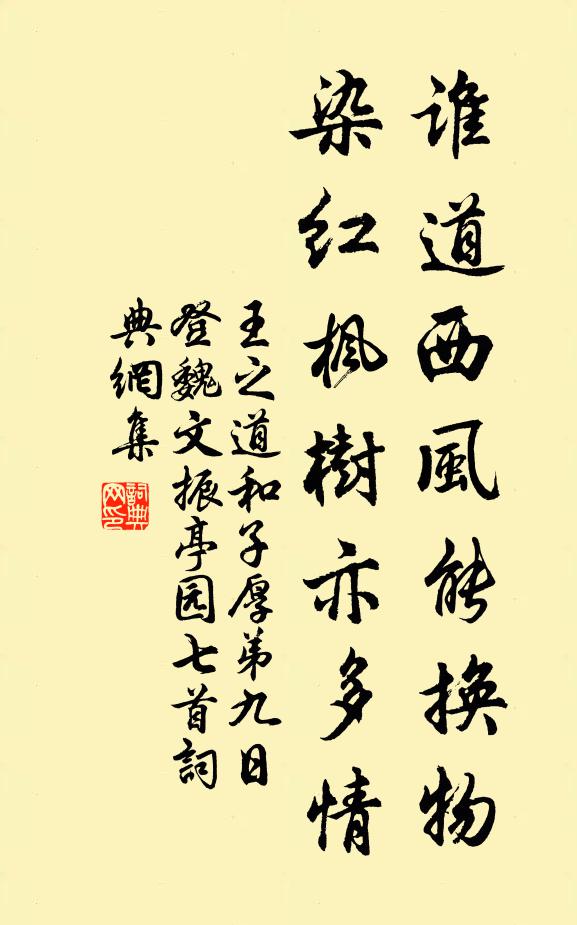 誰道西風能換物
染紅楓樹亦多情
王之道和子厚弟九日
登魏文振亭园七首詞
典網集
詞典
网印